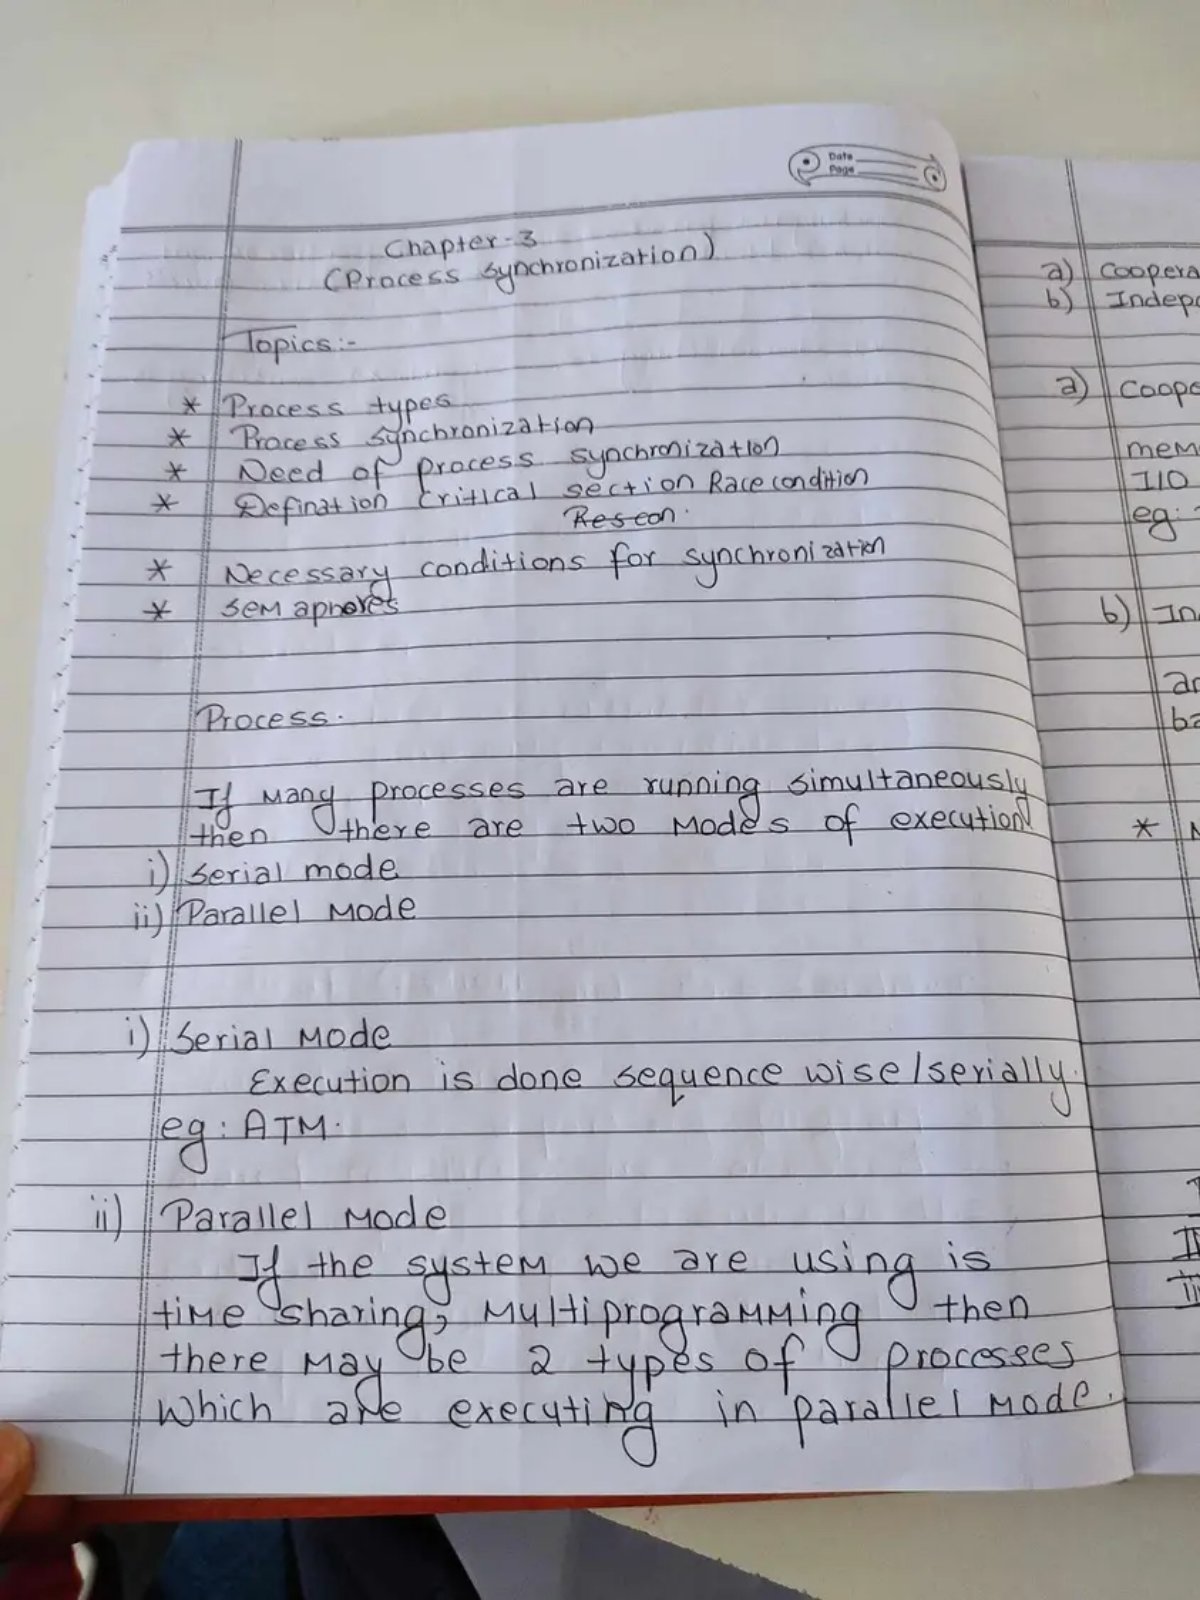 Date
Page
Chapter-3
(Process synchronization)
Topics:-
* Process types
* Process synchronization
* Need of process synchronization
* Defination critical section Race condition
Reseon.
* Necessary conditions for synchronization
* SEM aphores
Process.
If Many processes are running simultaneously
then there are two Modes of execution
i) Serial mode
ii) Parallel Mode
i) Serial Mode
Execution is done sequence wise/serially.
eg: ATM.
ii) Parallel Mode
If the system we are using is
time sharing, Multiprogramming then
there May be 2 types of processes
Which are executing in parallel Mode.
a) Coopera
b) Indep
a) Coope
mem
I/O
eg:
b) In
ar
ba
*